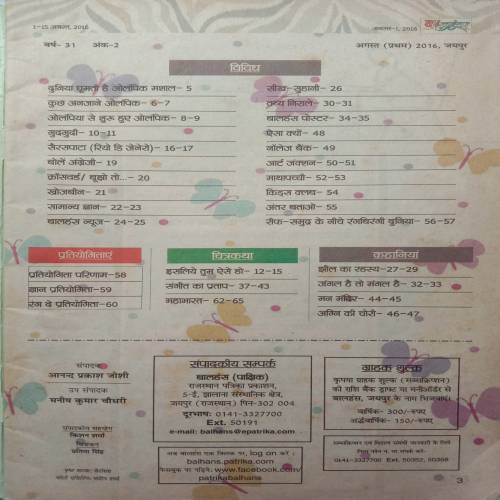 1-15 अगस्त, 2016
अगस्त-1, 2016
वर्ष- 31 अंक-2
अगस्त (प्रथम) 2016, जयपुर
विविध
दुनिया घूमती है ओलंपिक मशाल- 5
कुछ अनजाने ओलंपिक- 6-7
ओलंपिया से शुरू हुए ओलंपिक- 8-9
गुदगुदी- 10-11
सैरसपाटा (रियो डि जेनेरो)- 16-17
बोलें अंग्रेजी- 19
क्रॉसवर्ड/ बूझो तो...- 20
खोजबीन- 21
सामान्य ज्ञान- 22-23
बालहंस न्यूज- 24-25
सीख-सुहानी- 26
तथ्य निराले- 30-31
बालहंस पोस्टर- 34-35
ऐसा क्यों- 48
नॉलेज बैंक- 49
आर्ट जंक्शन- 50-51
माथापच्ची- 52-53
किड्स क्लब- 54
अंतर बताओ- 55
सैफ-समुद्र के नीचे रंगबिरंगी दुनिया- 56-57
प्रतियोगिताएं
प्रतियोगिता परिणाम-58
ज्ञान प्रतियोगिता-59
रंग दे प्रतियोगिता-60
चित्रकथा
इसलिये तुम ऐसे हो- 12-15
संगीत का प्रताप- 37-43
महाभारत- 62-65
कहानियां
झील का रहस्य-27-29
जंगल है तो मंगल है- 32-33
मन मंदिर- 44-45
अग्नि की चोरी- 46-47
संपादक
आनन्द प्रकाश जोशी
उप संपादक
मनीष कुमार चौधरी
संपादकीय सहयोग
किशन शर्मा
चित्रांकन
प्रतिमा सिंह
संपादकीय सम्पर्क
बालहंस (पाक्षिक)
राजस्थान पत्रिका प्रकाशन,
5-ई, झालाना संस्थानिक क्षेत्र,
जयपुर (राजस्थान) पिन-302 004
दूरभाष: 0141-3327700
Ext. 50191
e-mail: balhans@epatrika.com
अब बालहंस इस लिंक पर, log on करें :
balhans.patrika.com
फेसबुक पर पढ़िये: www.facebook.com/
patrikabalhans
ग्राहक शुल्क
कृपया ग्राहक शुल्क (सब्सक्रिप्शन)
की राशि बैंक ड्राफ्ट या मनीऑर्डर से
बालहंस, जयपुर के नाम भिजवाएं।
वार्षिक- 300/-रुपए
अर्द्धवार्षिक- 150/-रुपए
सब्सक्रिप्शन एवं वितरण संबंधी जानकारी के लिए
0141-3327700 Ext. 50352, 50358
3